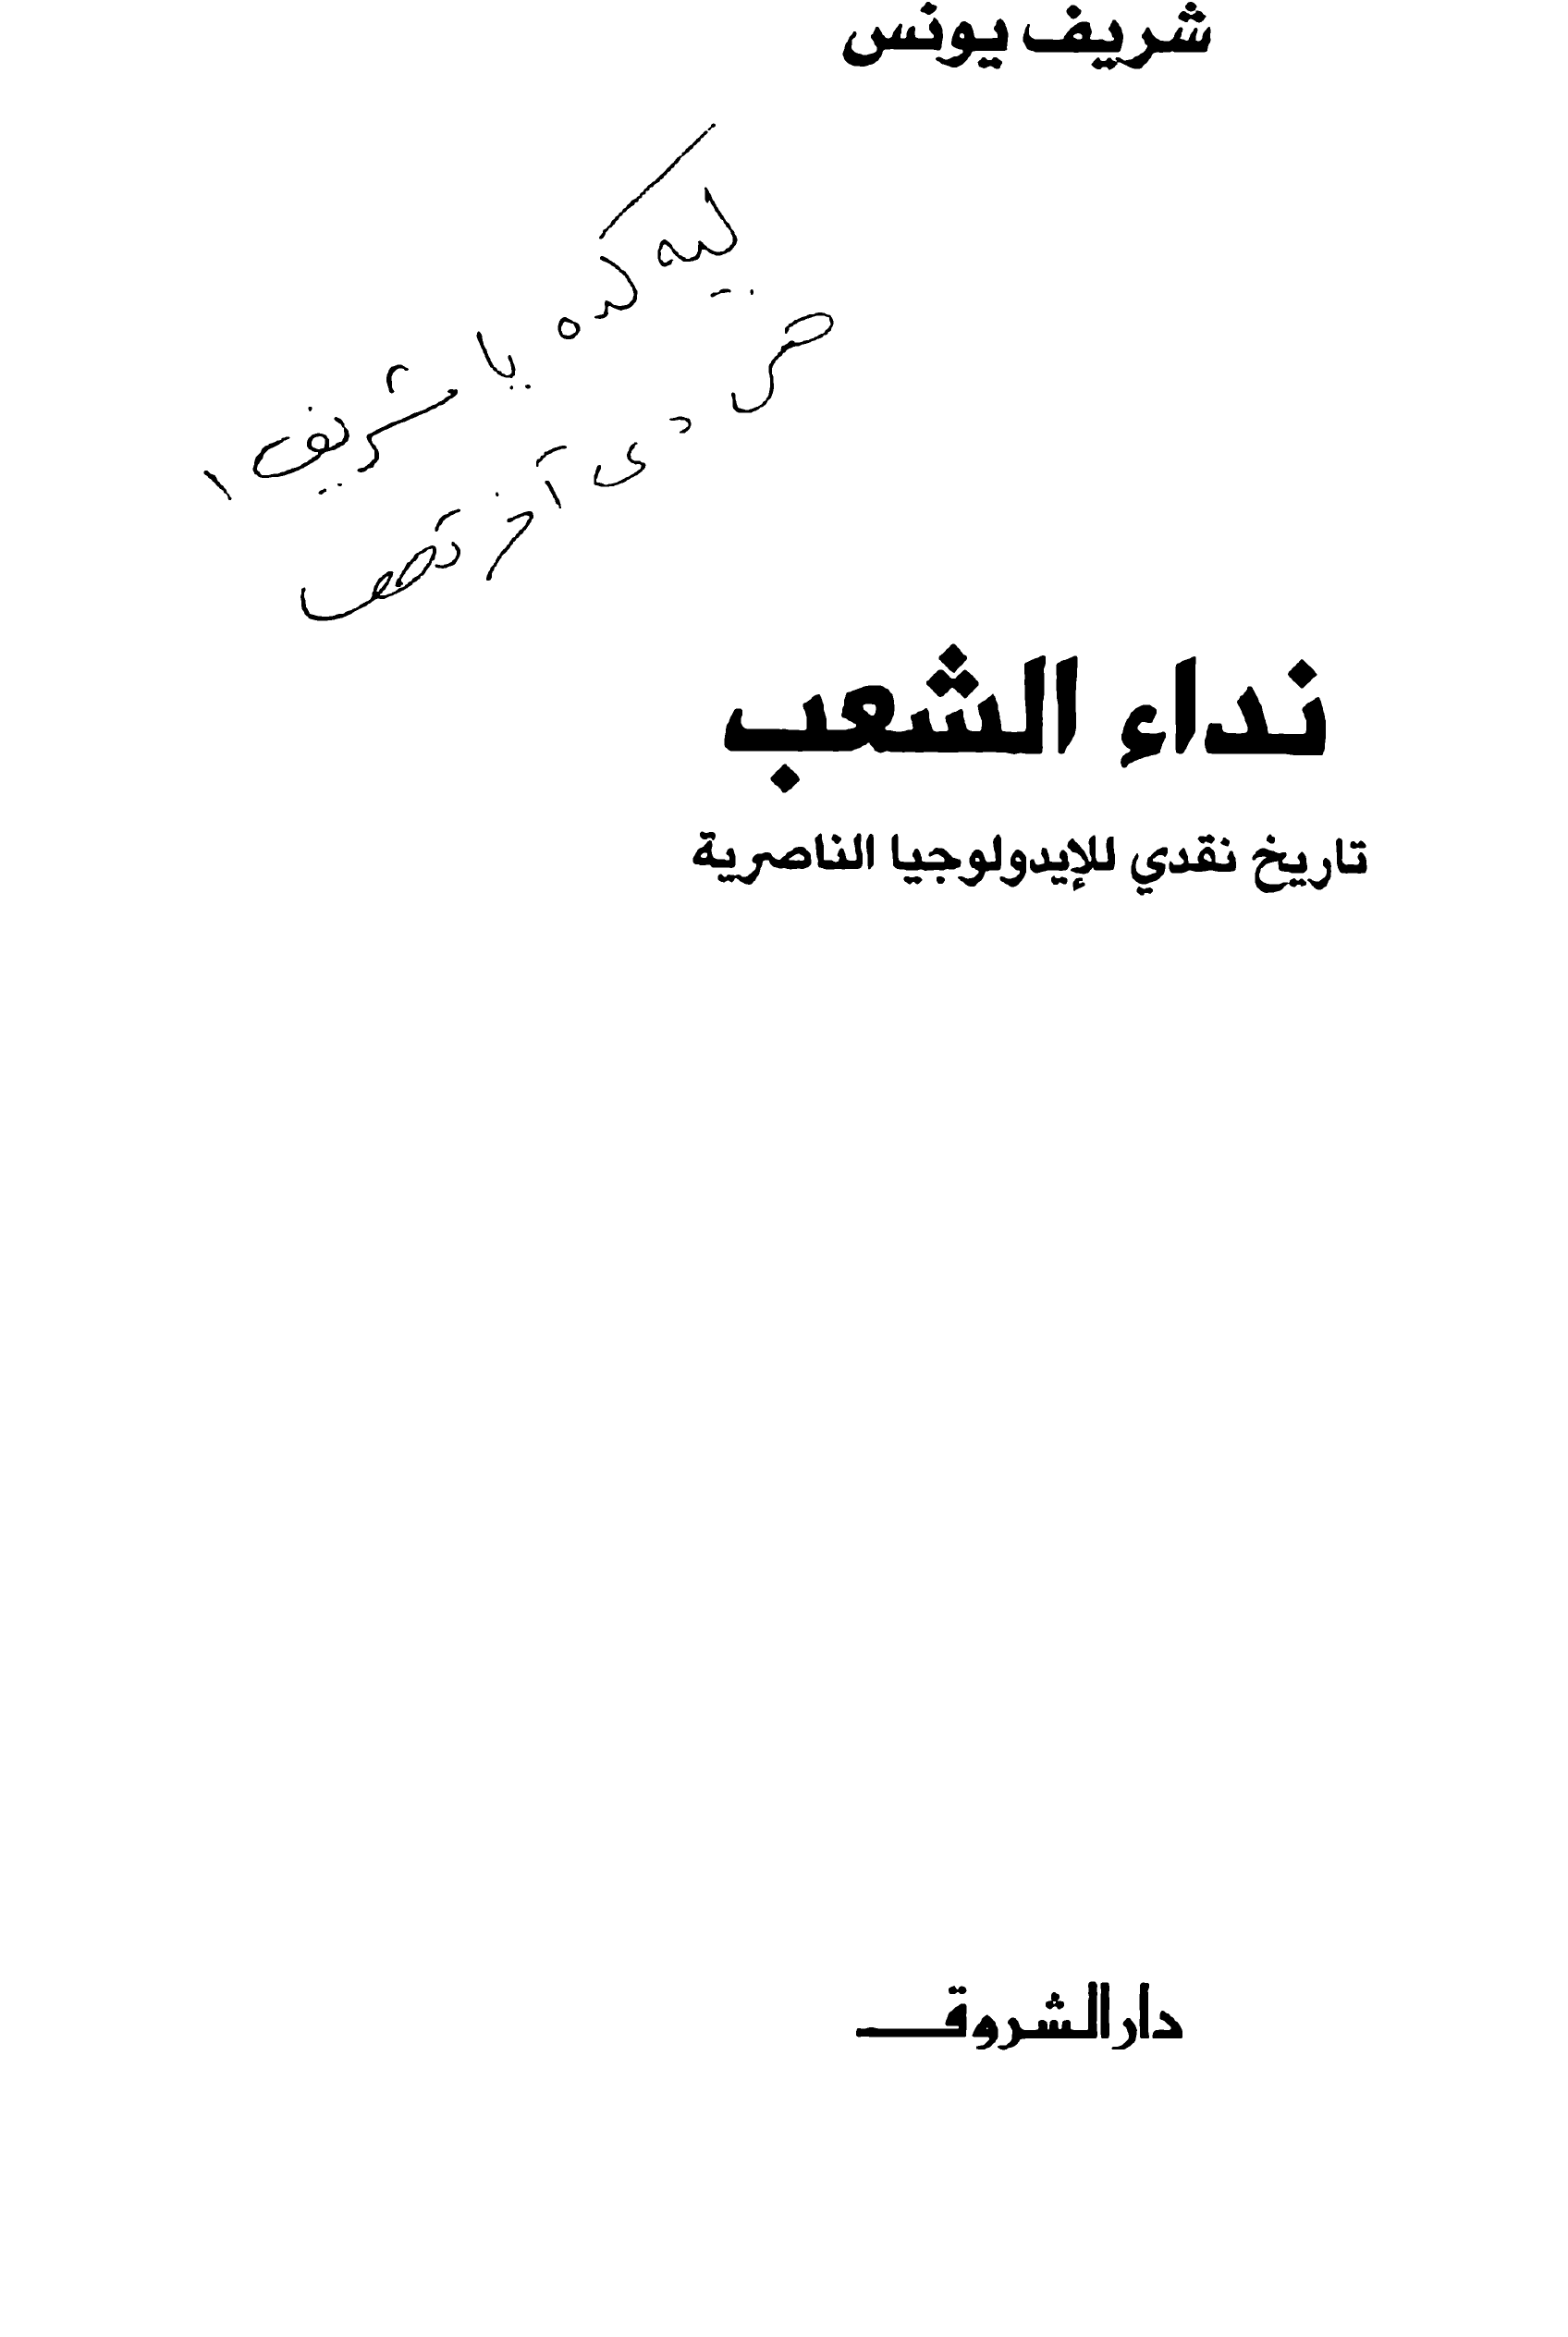 شريف يونس
ليه كده يا شريف !
دى آخر
نداء الشعب
تاريخ نقدي للإيدولوجيا الناصرية
دار الشروق